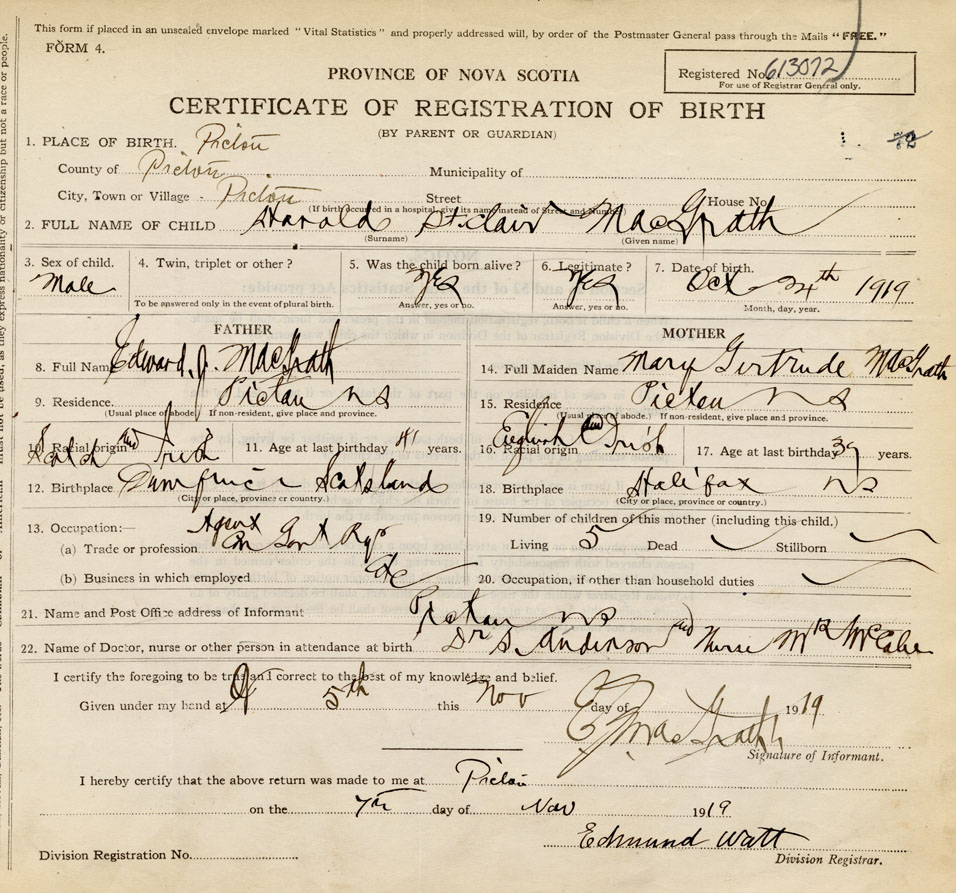 This form if placed in an unsealed envelope marked "Vital Statistics" and properly addressed will, by order of the Postmaster General pass through the Mails "FREE."
FORM 4.
PROVINCE OF NOVA SCOTIA
Registered No. 613072
For use of Registrar General only.
CERTIFICATE OF REGISTRATION OF BIRTH
(BY PARENT OR GUARDIAN)
1. PLACE OF BIRTH. Pictou
County of Pictou Municipality of
City, Town or Village Pictou Street House No.
(If birth occurred in a hospital, give its name instead of Street and Number)
2. FULL NAME OF CHILD Harold St. Clair MacGrath
(Surname) (Given name)
3. Sex of child. 4. Twin, triplet or other? 5. Was the child born alive? 6. Legitimate? 7. Date of birth.
Male Yes Yes Oct 24th 1919
To be answered only in the event of plural birth. Answer, yes or no. Answer, yes or no. Month, day, year.
FATHER MOTHER
8. Full Name Edward J. MacGrath 14. Full Maiden Name Mary Gertrude MacGrath
9. Residence. Pictou NS 15. Residence Pictou NS
(Usual place of abode. If non-resident, give place and province. (Usual place of abode.) If non-resident, give place and province.
10. Racial origin Scotch and Irish 11. Age at last birthday 41 years. 16. Racial origin English and Irish 17. Age at last birthday 39 years.
12. Birthplace Scotland 18. Birthplace Halifax NS
(City or place, province or country.) (City or place, province or country.)
13. Occupation:— 19. Number of children of this mother (including this child.)
(a) Trade or profession Agent Can Govt Rys Living 5 Dead Stillborn
(b) Business in which employed 20. Occupation, if other than household duties
21. Name and Post Office address of Informant Pictou NS
22. Name of Doctor, nurse or other person in attendance at birth Dr S. Anderson and Nurse McCabe
I certify the foregoing to be true and correct to the best of my knowledge and belief.
Given under my hand at 5th this Nov day of 1919
Signature of Informant.
E J MacGrath
I hereby certify that the above return was made to me at Pictou
on the 7th day of Nov 1919
Edmund Watt
Division Registration No. Division Registrar.